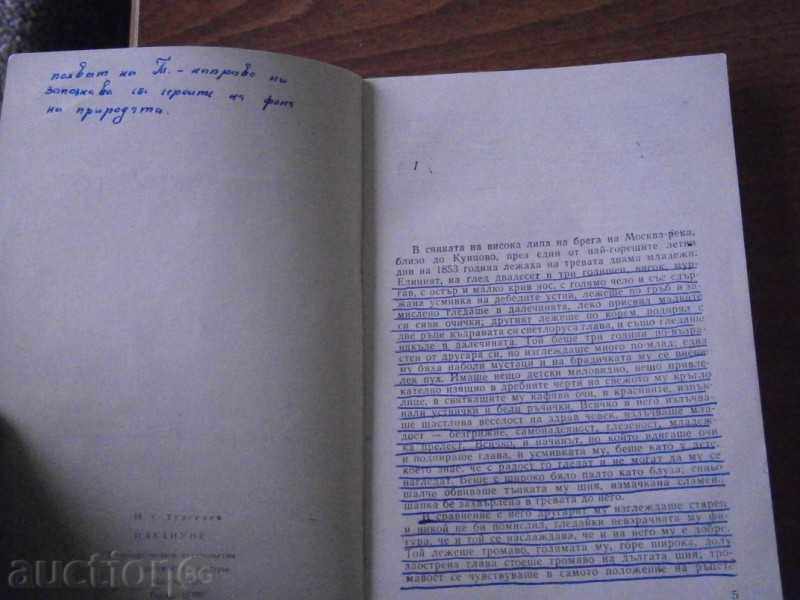 похват на Т. – направо ни
запознава със героите на фона
на природата.
И. С. Тургенев
НАКАНУНЕ
I
В сянката на висока липа на брега на Москва-река,
близо до Кунцово, през един от най-горещите летни
дни на 1853 година лежаха на тревата двама младежи.
Единият, на глед двадесет и три годишен, висок, мур-
гав, с остър и малко крив нос, с голямо чело и със сдър-
жана усмивка на дебелите устни, лежеше по гръб и за-
мислено гледаше в далечината, леко присвил малките
си сиви очички; другият лежеше по корем, подпрял с
две ръце къдравата си светлоруса глава, и също гледаше
някъде в далечината. Той беше три години по-възра-
стен от другаря си, но изглеждаше много по-млад; едва
му бяха наболи мустаци и на брадичката му се виеше
лек пух. Имаше нещо детски миловидно, нещо привле-
кателно изящно в дребните черти на свежото му кръгло
лице, в сваткащите му кафяви очи, в красивите, изпък-
нали устнички и бели ръчички. Всичко в него излъчва-
ше щастлова веселост на здрав човек, излъчваше мла-
дост — безгрижие, самонадеяност, глезеност, младеж-
ка прелест. Всичко, и начинът, по който вдигаше очи
и подпираше глава, и усмивката му, беше като у дете,
което знае, че с радост го гледат и не могат да му се
нагледат. Беше с широко бяло палто като блуза; синьо
шалче обвиваше тънката му шия, измачкана сламена
шапка бе захвърлена в тревата до него.
В сравнение с него другарят му изглеждаше старец
и никой не би помислил, гледайки невзрачната му фи-
гура, че и той се наслаждава, че и на него му е добре.
Той лежеше тромаво, голямата му, горе широка, долу
заострена глава стоеше тромаво на дългата шия; тро-
мавост се чувствуваше в самото положение на ръцете
5
auctionBG